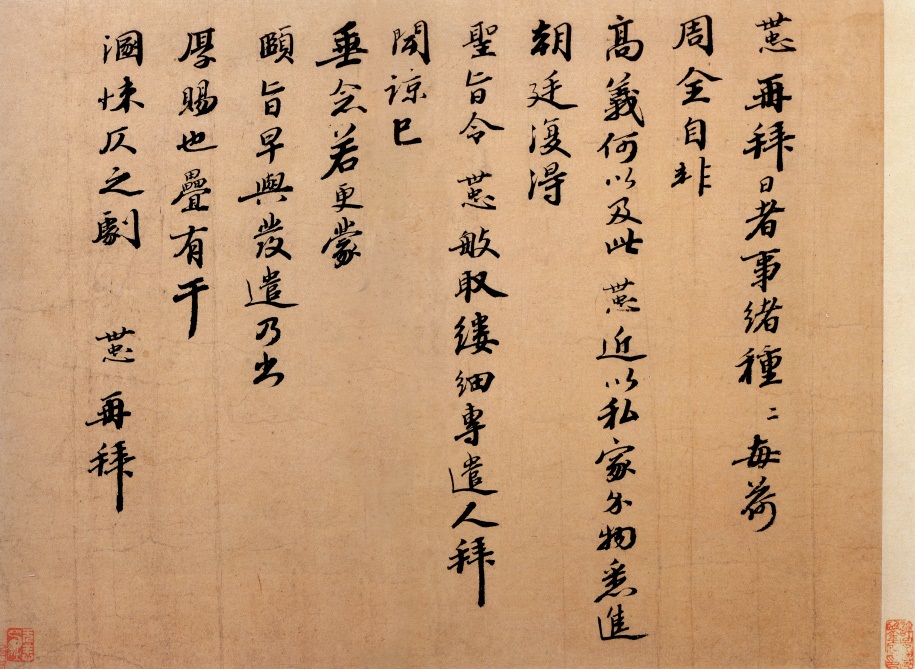 懃再拜日者事緒種二每荷
周全自非
高義何以及此 懃近以私家分物悉進
朝廷復得
聖旨令 懃敏取縷細專遣人拜
聞諒已
垂念若更蒙
頤旨早與發遣乃出
厚賜也疊有干
溷悚仄之劇 懃再拜